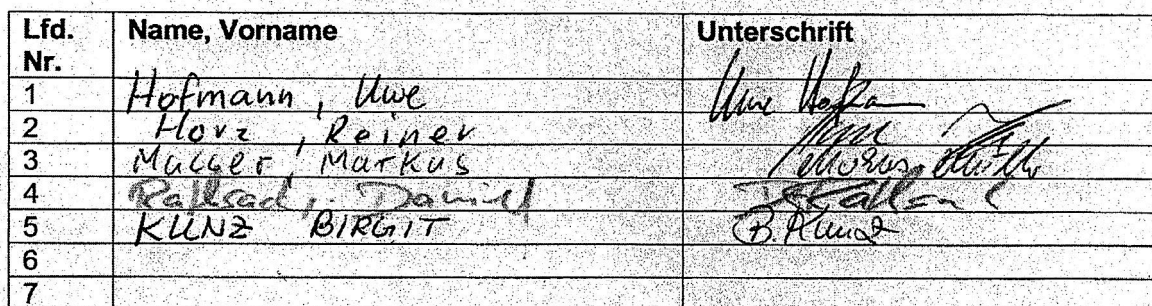 Lfd. Nr. Name, Vorname Unterschrift
1 Hofmann, Uwe Uwe Hofmann
2 Horz, Rainer
3 Müller, Markus Markus Müller
4 Daniel
5 KUNZ BIRGIT B. Kunz
6
7